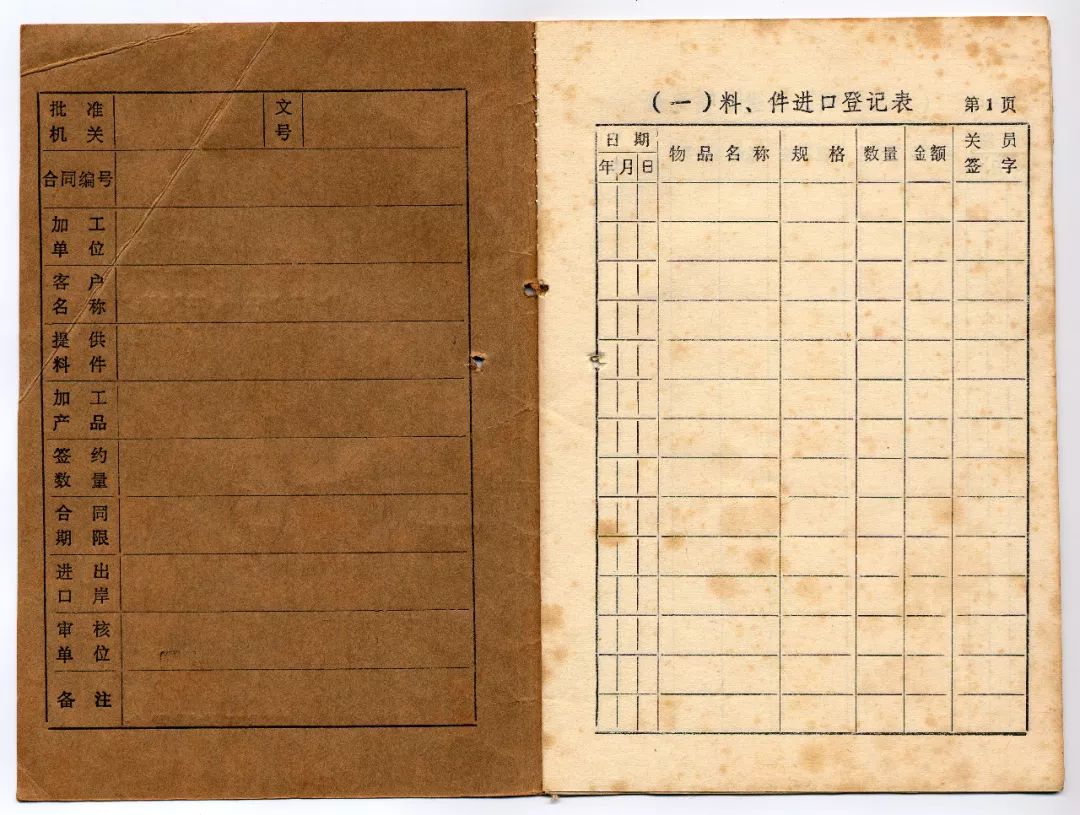 批准 文
机关 号
合同编号
加工
单位
客户
名称
提供
料件
加工
产品
签约
数量
合同
期限
进出
口岸
审核
单位
备注
(一)料、件进口登记表 第1页
日期 物品名称 规格 数量 金额 关员
年 月 日 签字